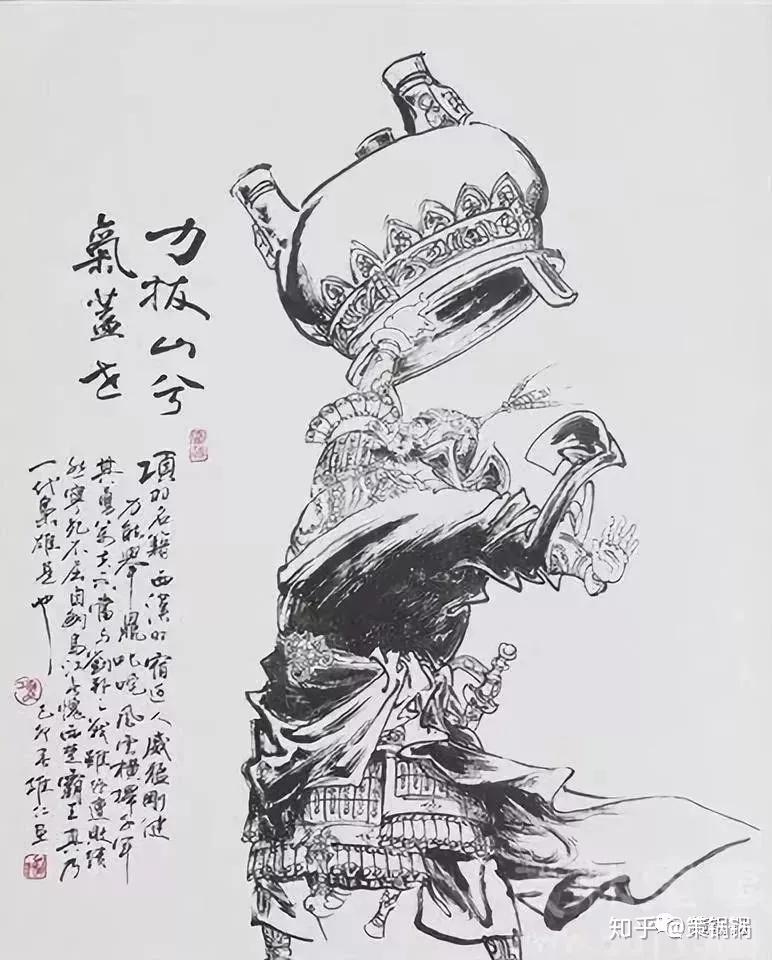 力拔山兮
氣蓋世
項羽名籍西漢時宿迁人威猛剛健
力能舉鼎叱咤風雲橫掃千軍
其勇萬夫不當与劉邦之戰雖終遭敗績
然寧死不屈自刎烏江愧西楚霸王真乃
一代梟雄是也
己卯雄仁
知乎 @策锅锅